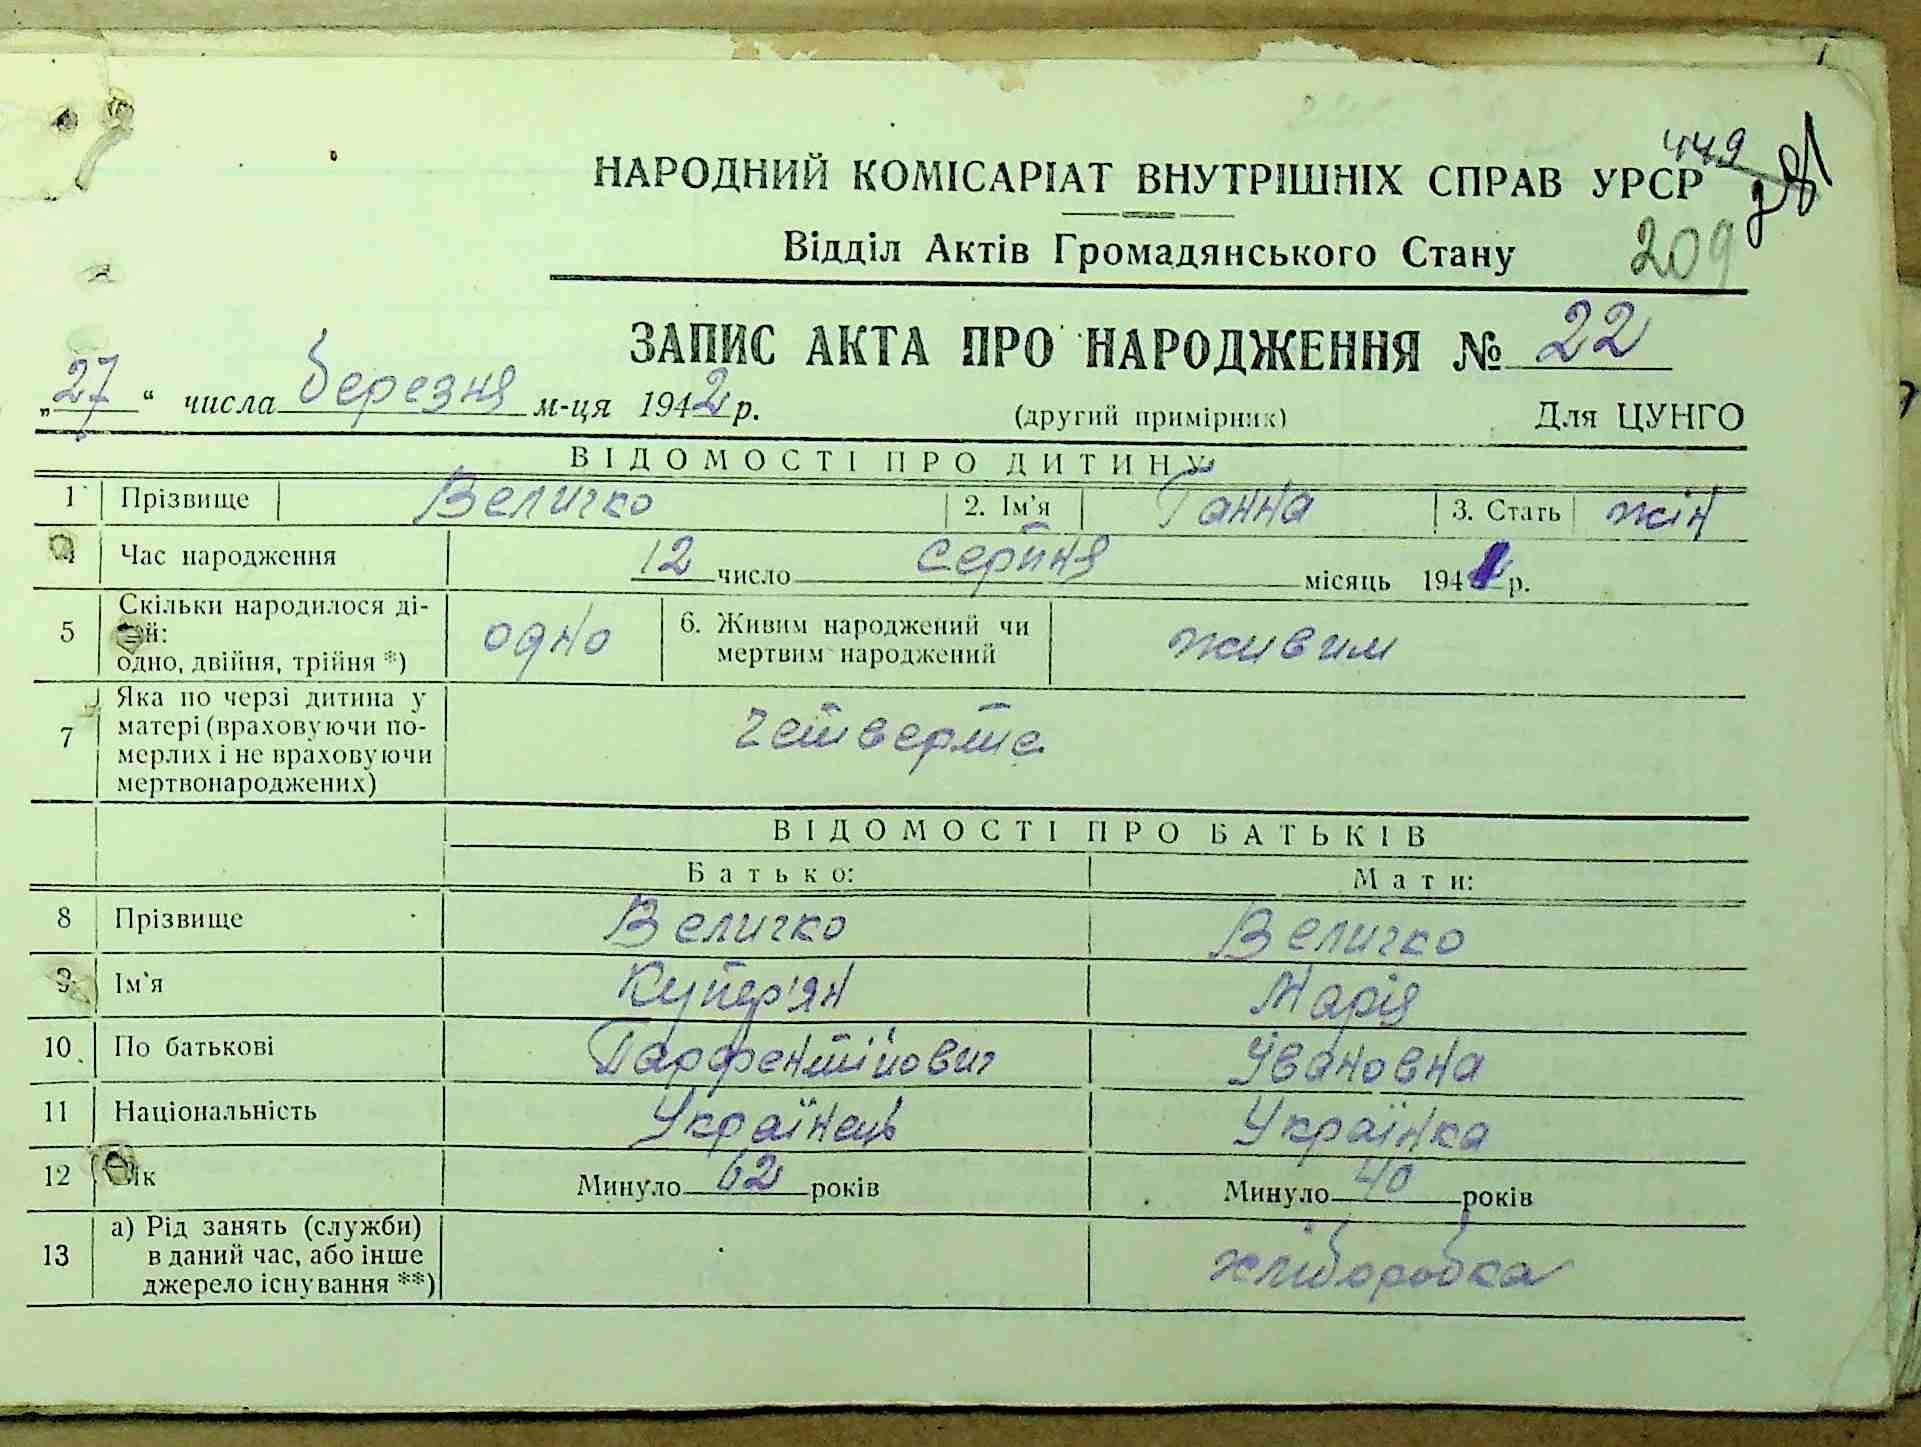 449
НАРОДНИЙ КОМІСАРІАТ ВНУТРІШНІХ СПРАВ УРСР
Відділ Актів Громадянського Стану 209
ЗАПИС АКТА ПРО НАРОДЖЕННЯ № 22
„27“ числа березня м-ця 1942 р. (другий примірник) Для ЦУНГО
ВІДОМОСТІ ПРО ДИТИНУ
1 Прізвище Величко 2. Ім'я Ганна 3. Стать жін
4 Час народження 12 число серпня місяць 1941 р.
5 Скільки народилося ді-
тей:
одно, двійня, трійня *) одно 6. Живим народжений чи
мертвим народжений живим
7 Яка по черзі дитина у
матері (враховуючи по-
мерлих і не враховуючи
мертвонароджених) четверте
ВІДОМОСТІ ПРО БАТЬКІВ
Батько: Мати:
8 Прізвище Величко Величко
9 Ім'я Купер'ян Марія
10 По батькові Парфентійович Івановна
11 Національність Українець Українка
12 Вік Минуло 62 років Минуло 40 років
13 а) Рід занять (служби)
в даний час, або інше
джерело існування **) хліборобка